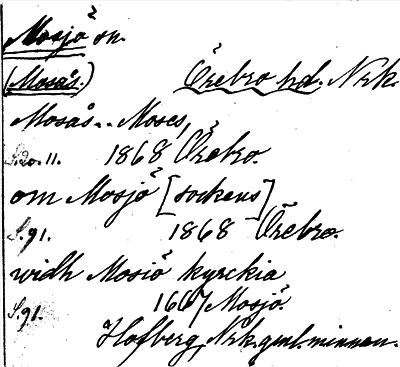 Mosjö sn.
(Mosås.) Örebro hd. Nrk.
Mosås.. Moses,
S.20.11. 1868 Örebro.
om Mosjö [sockens]
S.91. 1868 Örebro.
widh Mosiö kyrckia
S.91. 1667 Mosjö.
Hofberg, Nrk. gml. minnen.